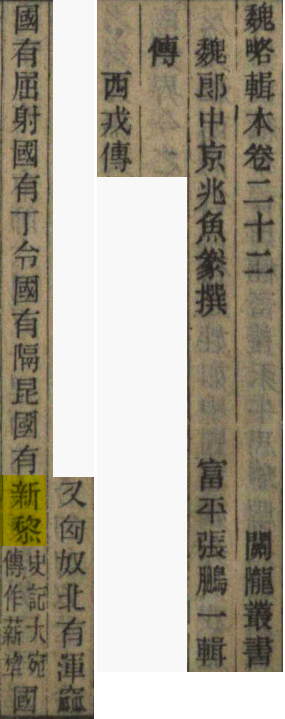 魏略輯本卷二十二 關隴叢書
魏郎中京兆魚豢撰 富平張鵬一輯
傳
西戎傳
又匈奴北有渾窳
國有屈射國有丁令國有隔昆國有新黎史記大宛傳作薪犂國